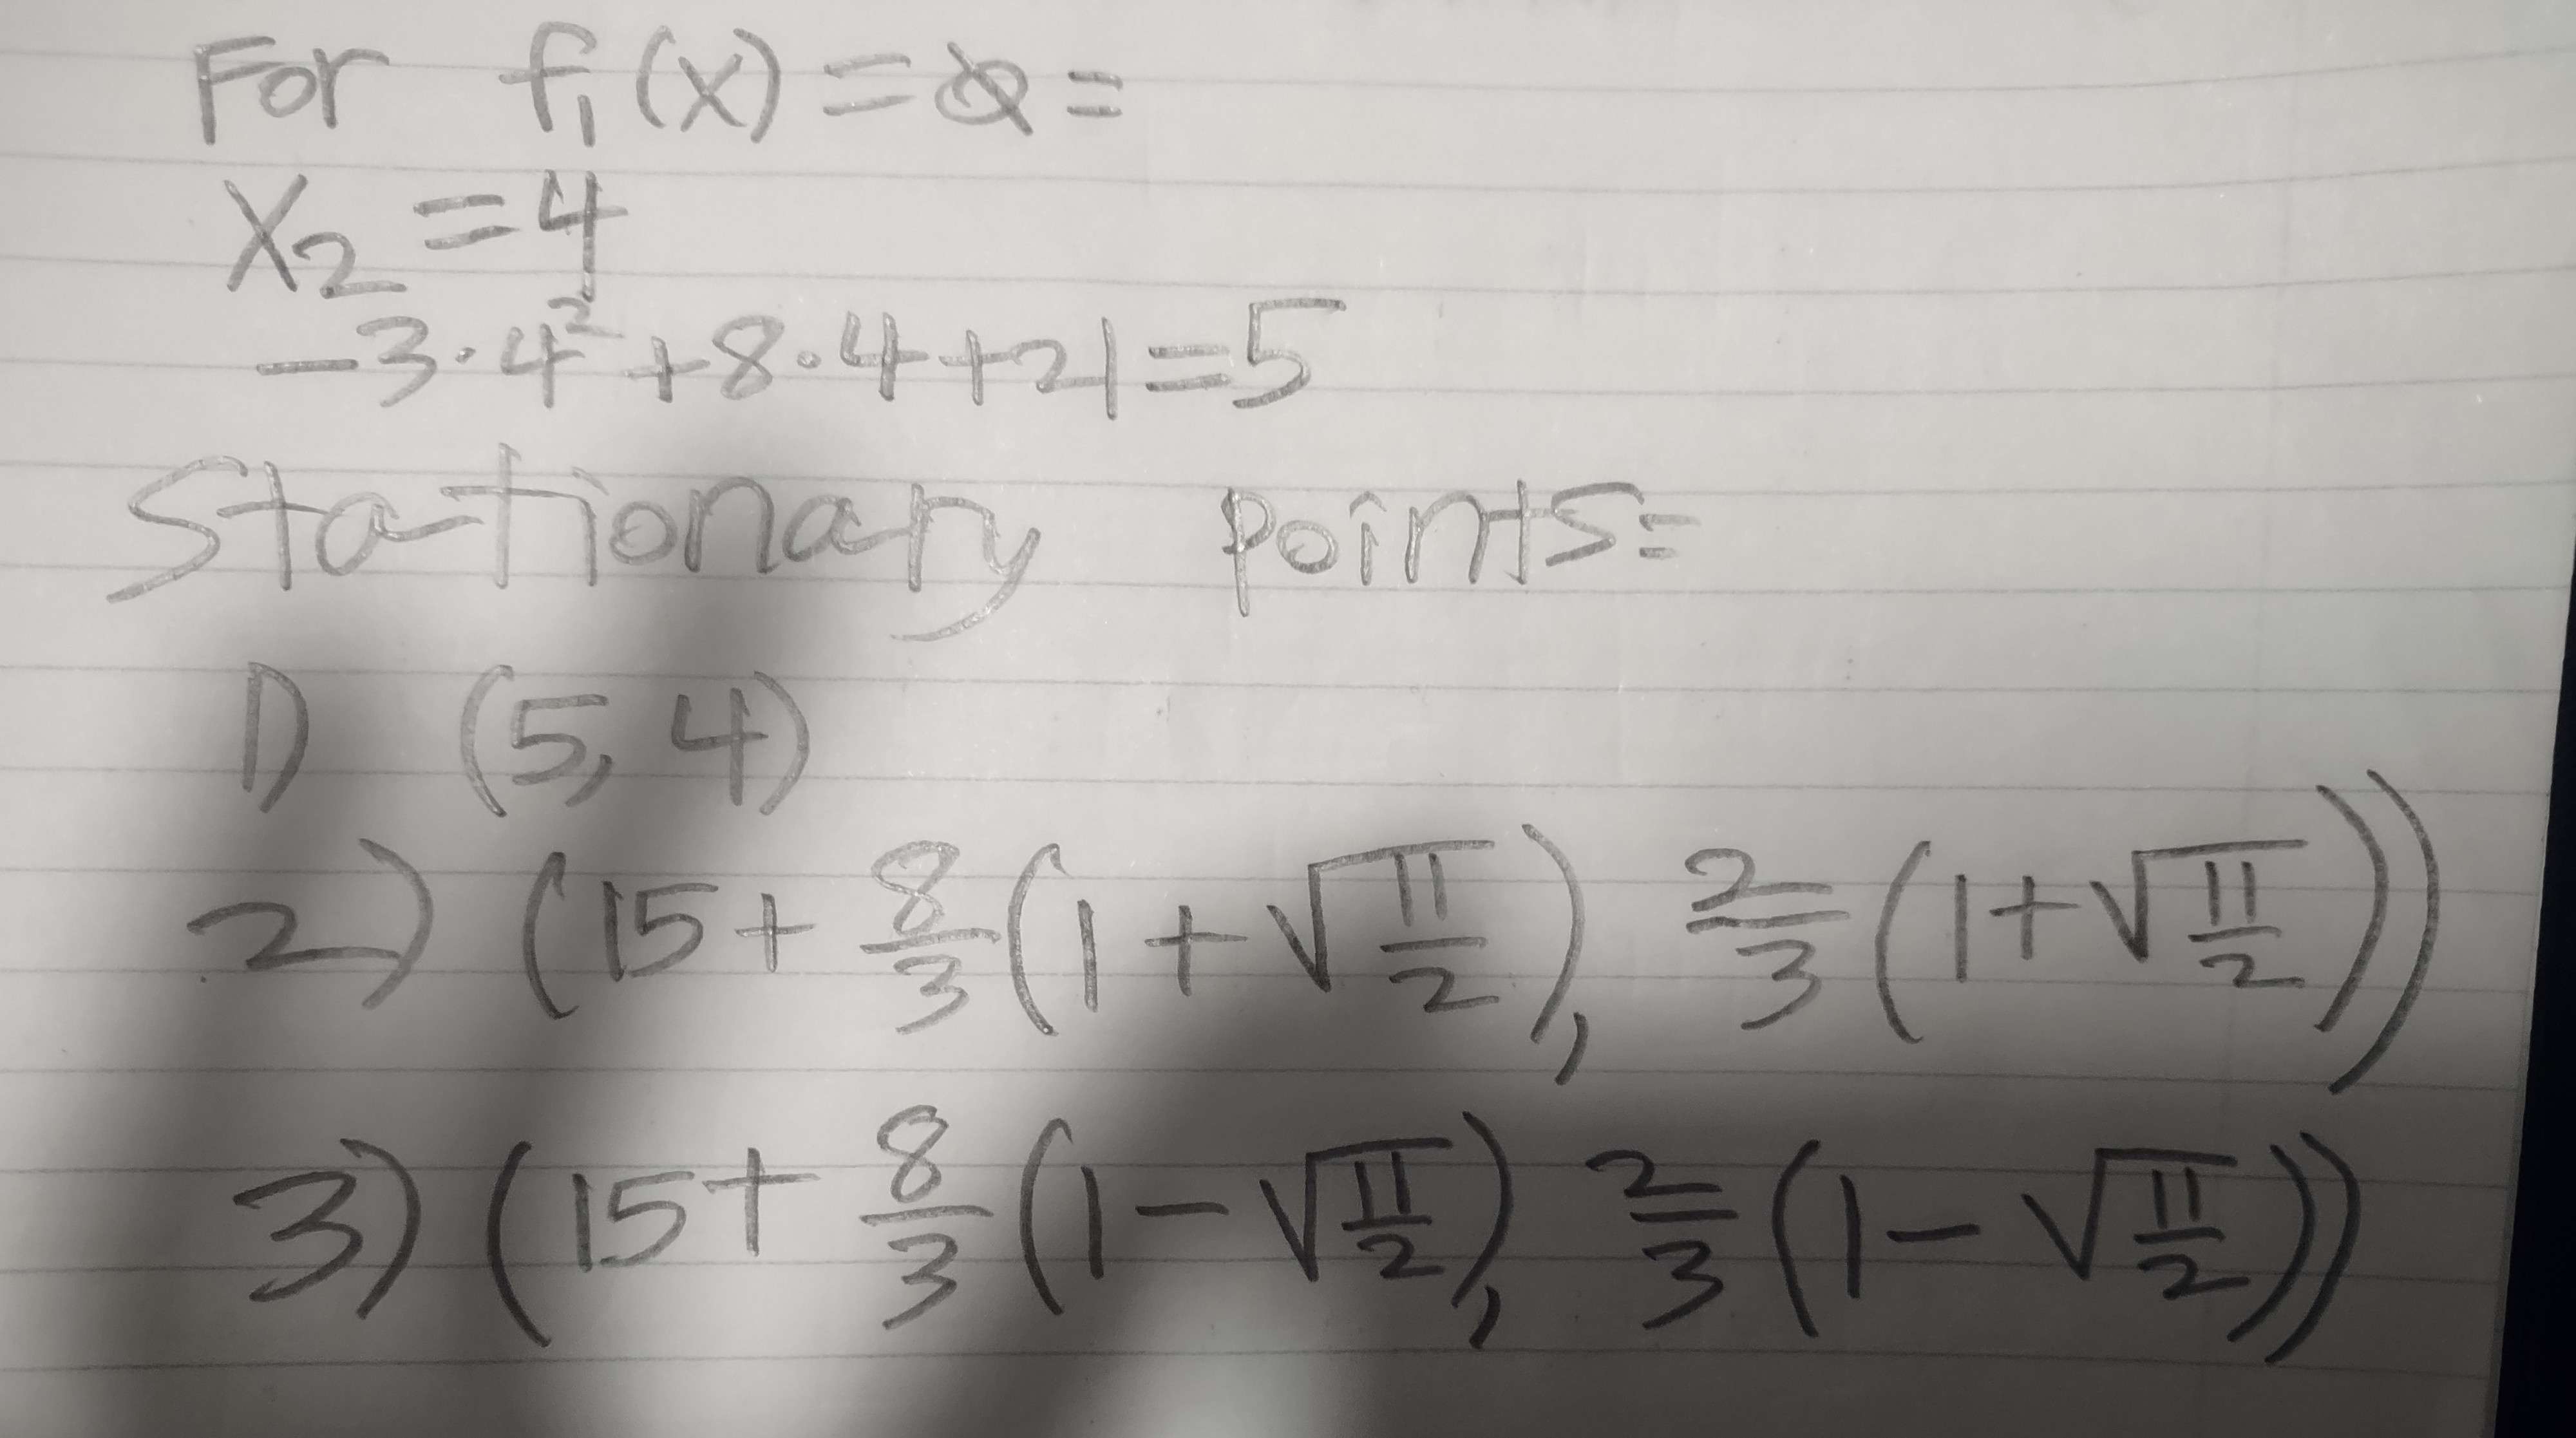 For f₁(x) = 0 =
x₂ = 4
-3·4² + 8·4 + 21 = 5
Stationary points=
1) (5, 4)
2) (15 + 8/3 (1 + √11/2), 2/3 (1 + √11/2))
3) (15 + 8/3 (1 - √11/2), 2/3 (1 - √11/2))